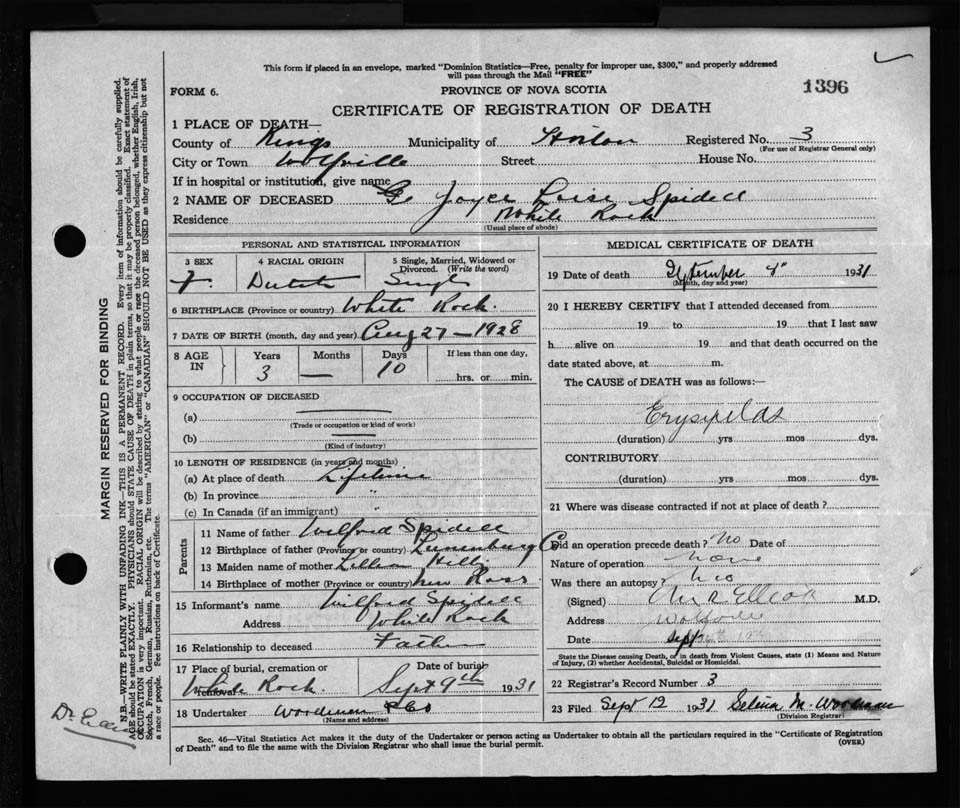 This form if placed in an envelope, marked "Dominion Statistics—Free, penalty for improper use, $300," and properly addressed
will pass through the Mail "FREE"
FORM 6.
PROVINCE OF NOVA SCOTIA
1396
CERTIFICATE OF REGISTRATION OF DEATH
1 PLACE OF DEATH—
County of Kings Municipality of Horton Registered No. 3
(For use of Registrar General only)
City or Town Wolfville Street House No.
If in hospital or institution, give name
2 NAME OF DECEASED Joyce Loise Spidell
Residence White Rock
(Usual place of abode)
PERSONAL AND STATISTICAL INFORMATION
3 SEX 4 RACIAL ORIGIN 5 Single, Married, Widowed or Divorced. (Write the word)
F. Dutch Single
6 BIRTHPLACE (Province or country) White Rock.
7 DATE OF BIRTH (month, day and year) Aug 27—1928
8 AGE IN Years Months Days If less than one day,
3 — 10 hrs. or min.
9 OCCUPATION OF DECEASED
(a)
(Trade or occupation or kind of work)
(b)
(Kind of industry)
10 LENGTH OF RESIDENCE (in years and months)
(a) At place of death Lifetime
(b) In province "
(c) In Canada (if an immigrant)
Parents
11 Name of father Wilford Spidell
12 Birthplace of father (Province or country) Lunenburg Co
13 Maiden name of mother Lillian Hill
14 Birthplace of mother (Province or country) New Ross
15 Informant's name Wilford Spidell
Address White Rock
16 Relationship to deceased Father
17 Place of burial, cremation or Removal Date of burial
White Rock. Sept 9th 1931
18 Undertaker Woodman & Co
(Name and address)
MEDICAL CERTIFICATE OF DEATH
19 Date of death September 8" 1931
(Month, day and year)
20 I HEREBY CERTIFY that I attended deceased from
19 to 19 that I last saw
h alive on 19 and that death occurred on the
date stated above, at m.
The CAUSE of DEATH was as follows:—
Erysipelas
(duration) yrs mos dys.
CONTRIBUTORY
(duration) yrs mos dys.
21 Where was disease contracted if not at place of death?
Did an operation precede death? No Date of
Nature of operation None
Was there an autopsy? No
(Signed) Elliott M.D.
Address Wolfville
Date Sept
State the Disease causing Death, or in death from Violent Causes, state (1) Means and Nature
of Injury, (2) whether Accidental, Suicidal or Homicidal.
22 Registrar's Record Number 3
23 Filed Sept 12 1931 Selina M. Woodman
(Division Registrar)
Sec. 46—Vital Statistics Act makes it the duty of the Undertaker or person acting as Undertaker to obtain all the particulars required in the "Certificate of Registration
of Death" and to file the same with the Division Registrar who shall issue the burial permit.
(OVER)
MARGIN RESERVED FOR BINDING
N.B.—WRITE PLAINLY WITH UNFADING INK—THIS IS A PERMANENT RECORD. Every item of information should be carefully supplied.
AGE should be stated EXACTLY. PHYSICIANS should STATE CAUSE OF DEATH in plain terms, so that it may be properly classified. Exact statement of
OCCUPATION is very important. RACIAL ORIGIN will be described by stating to what people or race the deceased person belonged, whether English, Irish,
Scotch, French, German, Russian, Ruthenian, etc. The terms "AMERICAN" or "CANADIAN" SHOULD NOT BE USED as they express citizenship but not
a race or people. See instructions on back of Certificate.
Dr.